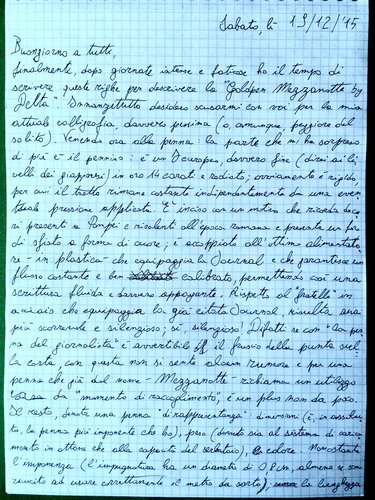 Sabato, lì 19/12/'15
Buongiorno a tutti,
finalmente, dopo giornate intense e faticose ho il tempo di
scrivere queste righe per descrivere la "Goldpen Mezzanotte" by
Delta. Innanzitutto desidero scusarmi con voi per la mia
attuale calligrafia, davvero pessima (o, comunque, peggiore del
solito). Venendo ora alla penna: la parte che mi ha sorpreso
di più è il pennino: è un Europeo, davvero fine (direi ai li-
velli dei giapponesi) in oro 14 carati e rodiato; ovviamente è rigido
per cui il tratto rimane costante indipendentemente da una even-
tuale pressione applicata. È inciso con un motivo che ricorda deco-
ri presenti a Pompei e risalenti all'epoca romana e presenta un foro
di sfiato a forma di cuore; è accoppiato all'ottimo alimentato-
re - in plastica - che equipaggia la Journal e che garantisce un
flusso costante e ben calibrato, permettendo così una
scrittura fluida e davvero appagante. Rispetto al "fratello" in
acciaio che equipaggia la già citata Journal, risulta assai
più scorrevole e silenzioso; sì, silenzioso! Difatti se con "la pen-
na del giornalista" è avvertibile il fruscio della punta sul-
la carta, con questa non si sente alcun rumore e per una
penna che già dal nome - Mezzanotte richiama un utilizzo
da "momento di raccoglimento", è un plus non da poco.
Il resto, denota una penna "di rappresentanza": dimensioni (è, in assolu-
to, la penna più imponente che ho), peso (dovuto sia al sistema di carica-
mento in ottone che alla capacità del serbatoio), colore. Nonostante
l'imponenza (l'impugnatura ha un diametro di cm, almeno se sono
riuscito ad usare correttamente il metro da sarto), la lunghezza